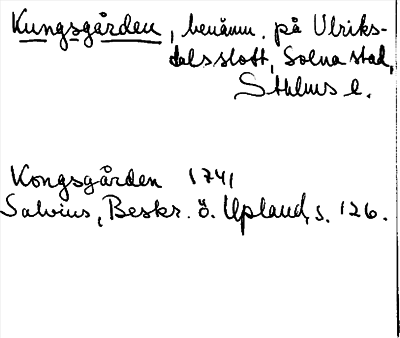 Kungsgården, benämn. på Ulriks-
dals slott, Solna stad,
Sthlms l.
Kongsgården 1741
Salvius, Beskr. ö. Upland, s. 126.